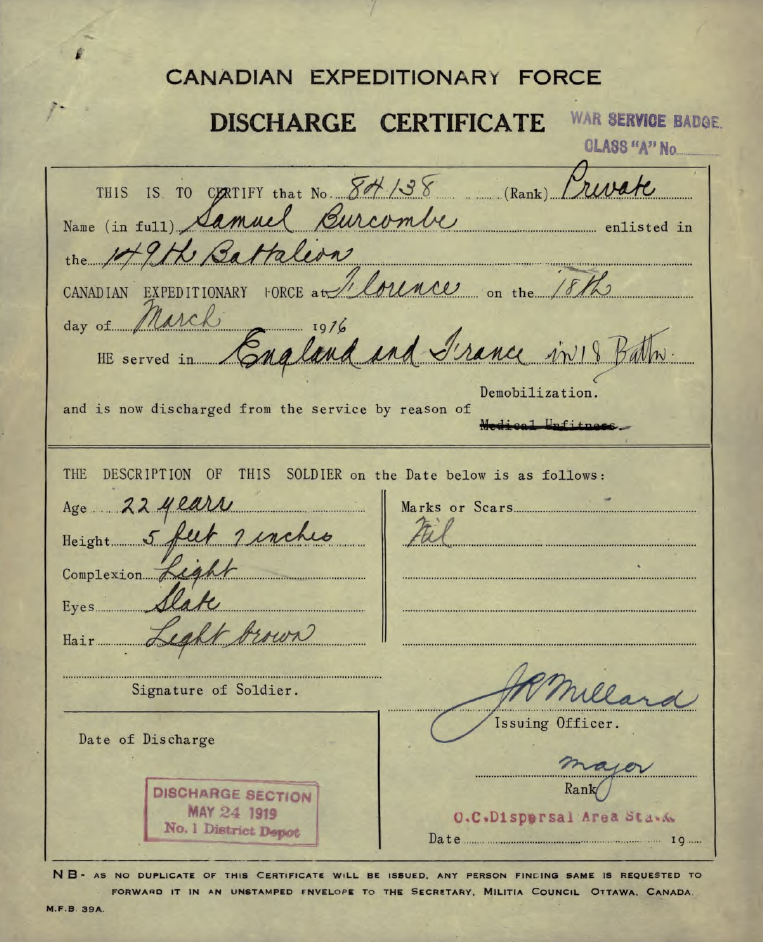 CANADIAN EXPEDITIONARY FORCE
DISCHARGE CERTIFICATE
WAR SERVICE BADGE.
CLASS "A" No
THIS IS TO CERTIFY that No. 84138 (Rank) Private
Name (in full) Samuel Burcombe enlisted in
the 149th Battalion
CANADIAN EXPEDITIONARY FORCE at Florence on the 18th
day of March 1916
HE served in England and France in 18 Battn.
Demobilization.
and is now discharged from the service by reason of
Medical Unfitness.
THE DESCRIPTION OF THIS SOLDIER on the Date below is as follows:
Age 22 years
Height 5 feet 7 inches
Complexion Light
Eyes Slate
Hair Light brown
Signature of Soldier.
Marks or Scars
Nil
JR Millard
Issuing Officer.
Major
Rank
O.C. Dispersal Area Sta.
Date 19
Date of Discharge
DISCHARGE SECTION
MAY 24 1919
No. 1 District Depot
NB- AS NO DUPLICATE OF THIS CERTIFICATE WILL BE ISSUED, ANY PERSON FINDING SAME IS REQUESTED TO
FORWARD IT IN AN UNSTAMPED ENVELOPE TO THE SECRETARY, MILITIA COUNCIL OTTAWA, CANADA.
M.F.B. 39A.